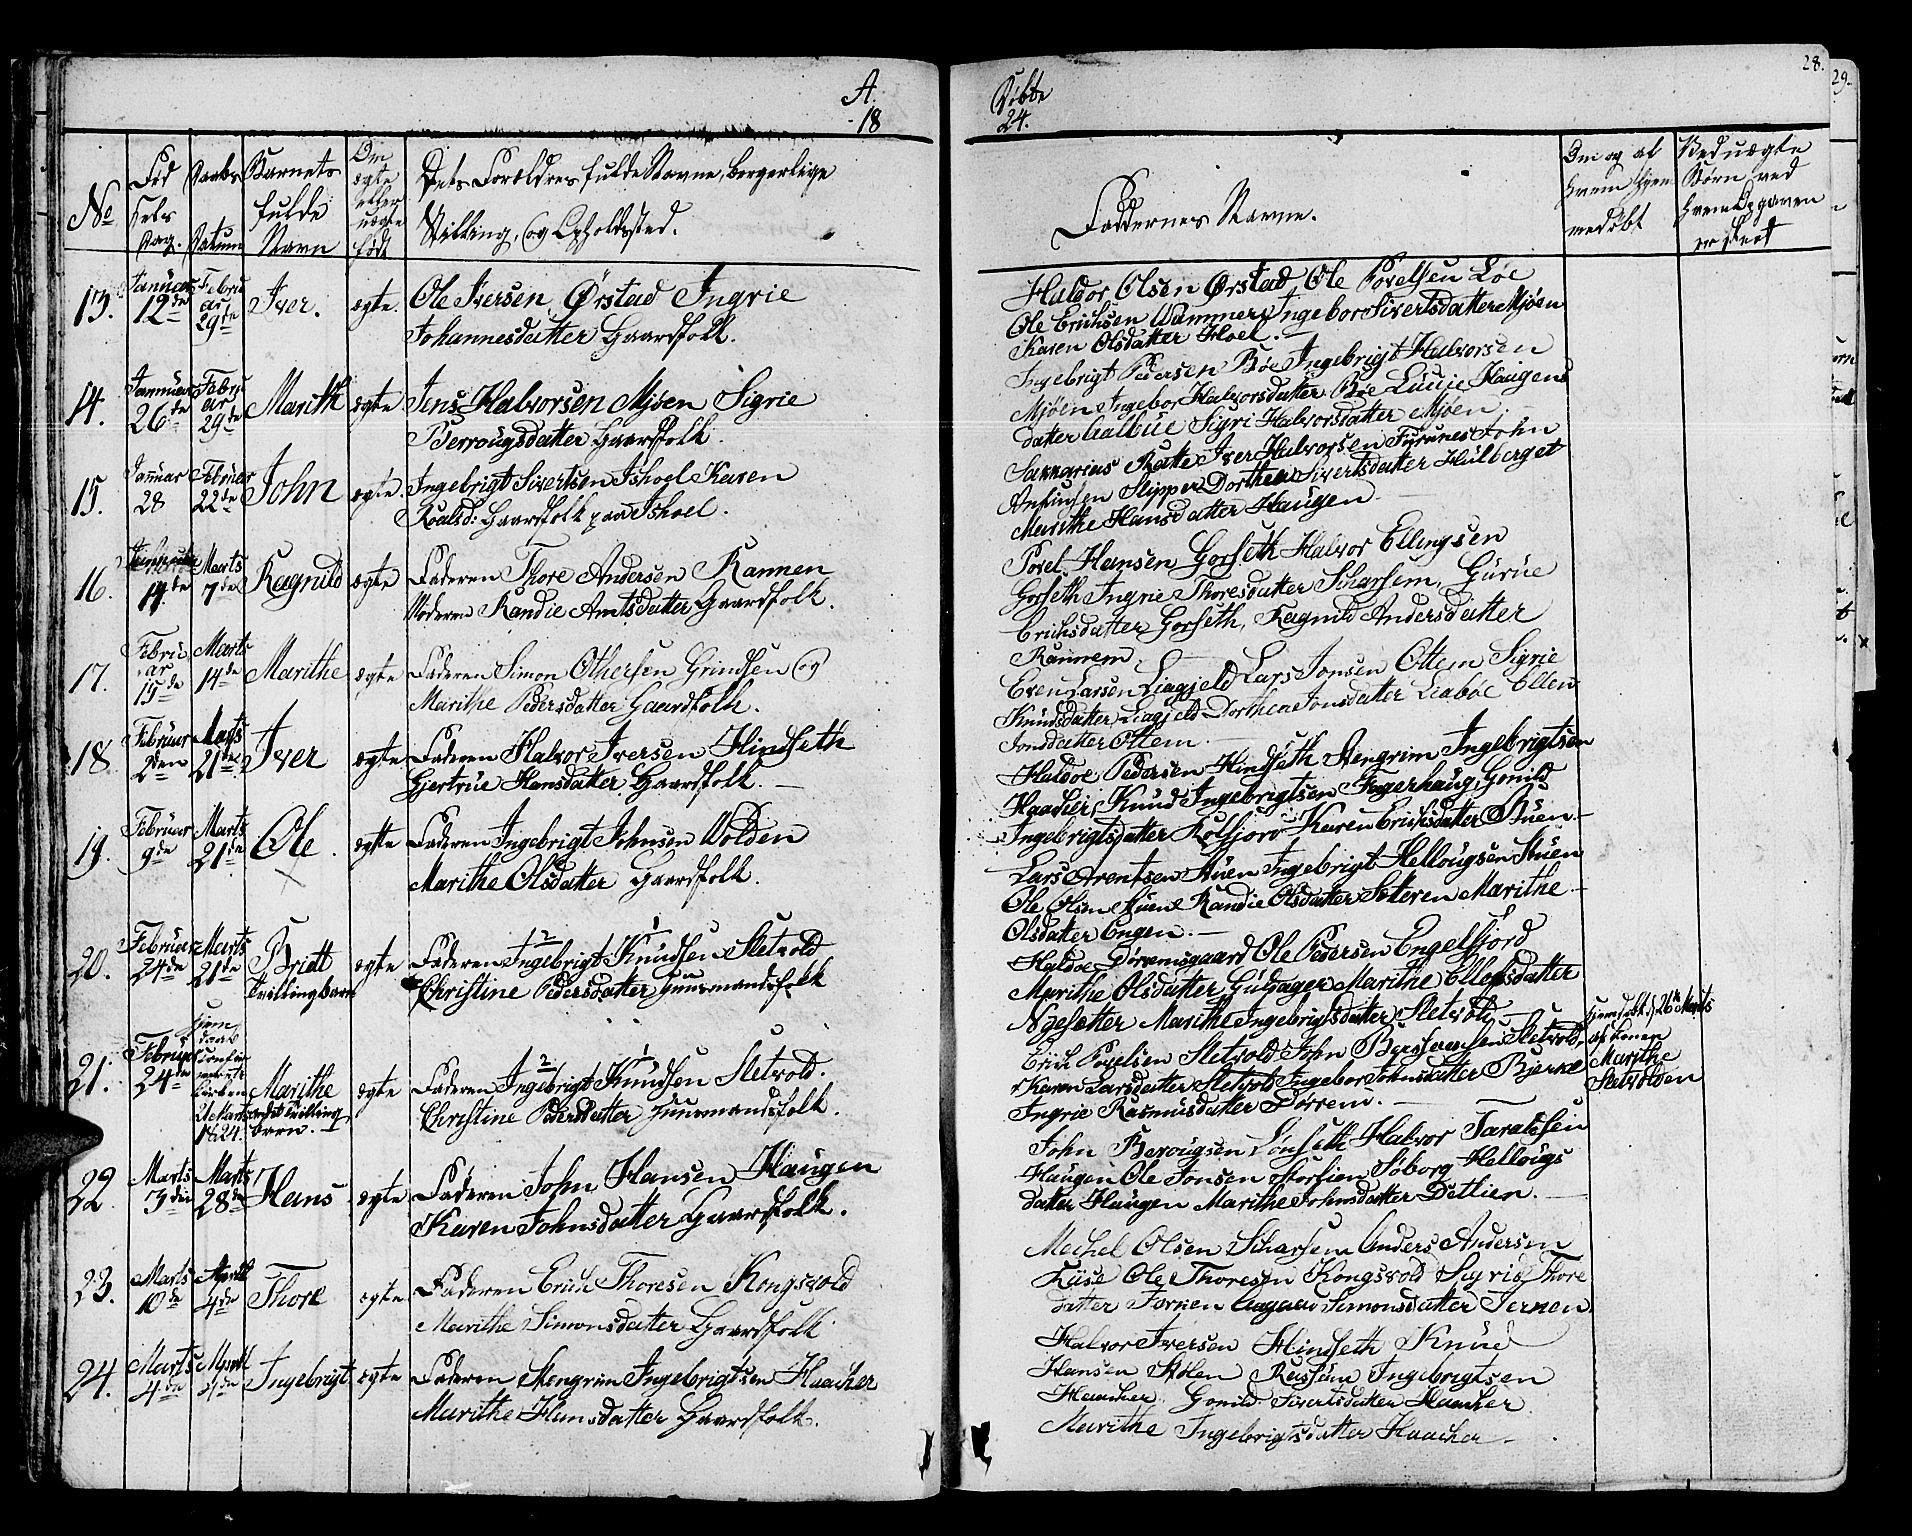 A. Døbte
1824.
28.
29.
No
Fød
sels
Dag.
Daabs
Datum
Barnets
fulde
Navn
Om
ægte
eller
uægte
født
Dets Forældres fulde Navne, borgerlige
Stilling, og Opholdssted.
Faddernes Navne.
Om og af
hvem hjem
medøbt
Ved uægte
Børn ved
hvem Opgaven
er skeet
13. Januar 12de Februar 29de Iver. ægte. Ole Iversen Ørstad Ingrie
Johannesdatter Gaardfolk.
Haldor Olsen Ørstad, Ole Povelsen Løe
Ole Erichsen Vammer, Ingebor Sivertsdatter Mjøen
Karen Olsdatter Hoel.
14. Januar 26de Februar 29de Marith ægte Jens Halvorsen Mjøen Sigrie
Berrougsdatter Gaardfolk.
Ingebrigt Pedersen Bøe Ingebrigt Halvorsen
Mjøen Ingebor Halvorsdatter Bøe Haugens
datter Aalbue Sigri Halvorsdatter Mjøen.
15. Januar 28 Februar 22de John ægte. Ingebrigt Sivertsen Ishoel Karen
Roalsd: Gaardfolk paa Ishoel.
Iver Halvorsen John
Slipper Dorthea Sivertsdatter Hulberget
Marithe Hansdatter Haugen
16. 14de Marts 7de Ragnild ægte Faderen Thore Andersen Rannem
Moderen Randie Arntsdatter Gaardfolk.
Povel Hansen Gorseth Halvor Ellingsen
Gorseth Ingrie Thoresdatter Scharsem, Gurue
Erichsdatter Gorseth, Ragnild Andersdatter
Rannem
17. Februar 15de Marts 14de Marithe ægte Faderen Simon Othersen Grindsen og
Marithe Pedersdatter Gaardfolk.
Even Larsen Liagjeld Lars Jonsen Ottem Sigrie
Knudsdatter Liagjeld Dorthea Jonsdatter Liabøe Ellen
Jonsdatter Ottem
18 Februar 2den Marts 21de Iver ægte Faderen Halvor Iversen Hindseth
Gjertrue Hansdatter Gaardfolk.
Haldoe Pedersen Hindseth Stengrim Ingebrigtsen
Haacker, Knud Ingebrigtsen Fagerhaug, Gonild
Ingebrigtsdatter Karen Erichsdatter Stuen.
19. Februar 9de Marts 21de Ole. ægte Faderen Ingebrigt Johnsen Volden
Marithe Olsdatter Gaardfolk.
Lars Arentsen Stuen Ingebrigt Hellougsen Stuen
Ole Olsen Stuen Randie Olsdatter Sætteren Marithe
Olsdatter Engen.
20. Februar 24de Marts 21de Britt
tvillingbarn ægte Faderen Ingebrigt Knudsen Sletvold
Christine Pedersdatter Huusmandsfolk
Haldoe Dørremsgaard Ole Pedersen Engelsfjord
Marithe Olsdatter Marithe Ellefsdatter
Marithe Ingebrigtsdatter Sletvold
21. Februar 24de
21de Marts
1824. Marithe
tvilling
barn. ægte Faderen Ingebrigt Knudsen Sletvold.
Christine Pedersdatter Huusmandsfolk.
Erich Povelsen Sletvold John Sletvold,
Karen Larsdatter Sletvold Ingebor Johnsdatter Bjerke
Ingrie Rasmusdatter Dørrem.
hjemdøbt d. 26de Marts
af Konen
Marithe
Sletvolden
22. Marts 7de Marts 28de Hans ægte Faderen John Hansen Haugen
Karen Johnsdatter Gaardfolk.
John Berougsen Lønseth Halvor Taraldsen
Haugen Ole Jonsen Storlien Søborg Hellougs
datter Haugen Marithe Johnsdatter Detlien.
23. Marts 10de April 4de Thore ægte Faderen Erich Thoresen Kongsvold
Marithe Simonsdatter Gaardfolk
Mechel Olsen Scharsem Anders Andersen
Ole Thoresen Kongsvold Sigrid Thore
datter Jernen Aagaad Simonsdatter Jernen
24. Marts 4de April 4de Ingebrigt ægte Faderen Stengrim Ingebrigtsen Haacker
Marithe Hansdatter Gaardfolk.
Halvor Iversen Hindseth Knud
Hansen Stølen Ingebrigtsen
Haacker Gonild Sivertsdatter Haacker
Marithe Ingebrigtsdatter Haacker